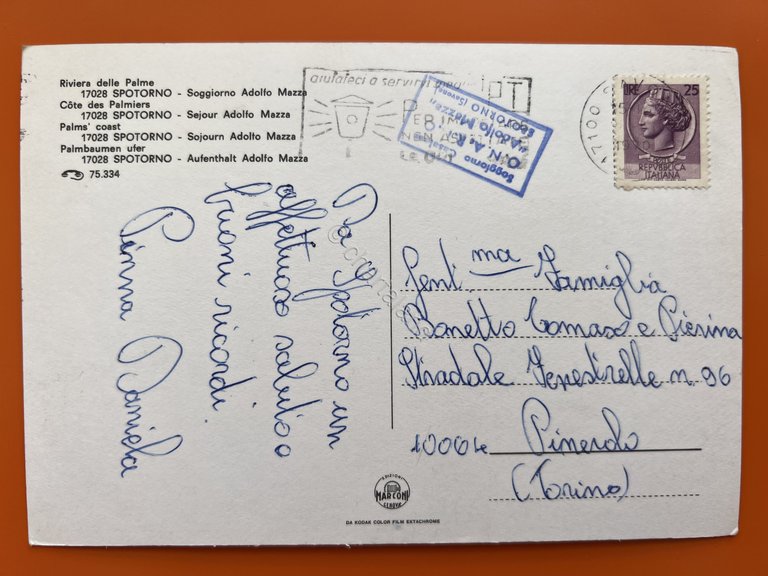 Riviera delle Palme
17028 SPOTORNO - Soggiorno Adolfo Mazza
Côte des Palmiers
17028 SPOTORNO - Sejour Adolfo Mazza
Palms' coast
17028 SPOTORNO - Sojourn Adolfo Mazza
Palmbaumen ufer
17028 SPOTORNO - Aufenthalt Adolfo Mazza
75.334
aiutateci a servirvi
Soggiorno
O.N.A.R.
"Adolfo Mazza"
SPOTORNO (Savona)
LIRE 25
REPVBBLICA
ITALIANA
Da Spotorno un
affettuoso saluto e
buoni ricordi.
Pinna Daniela
Gent.ma Famiglia
Bonetto Tomaso e Pierina
Stradale Fenestrelle n. 96
10064 Pinerolo
(Torino)
EDIZIONI
MARCONI
GENOVA
DA KODAK COLOR FILM EKTACHROME